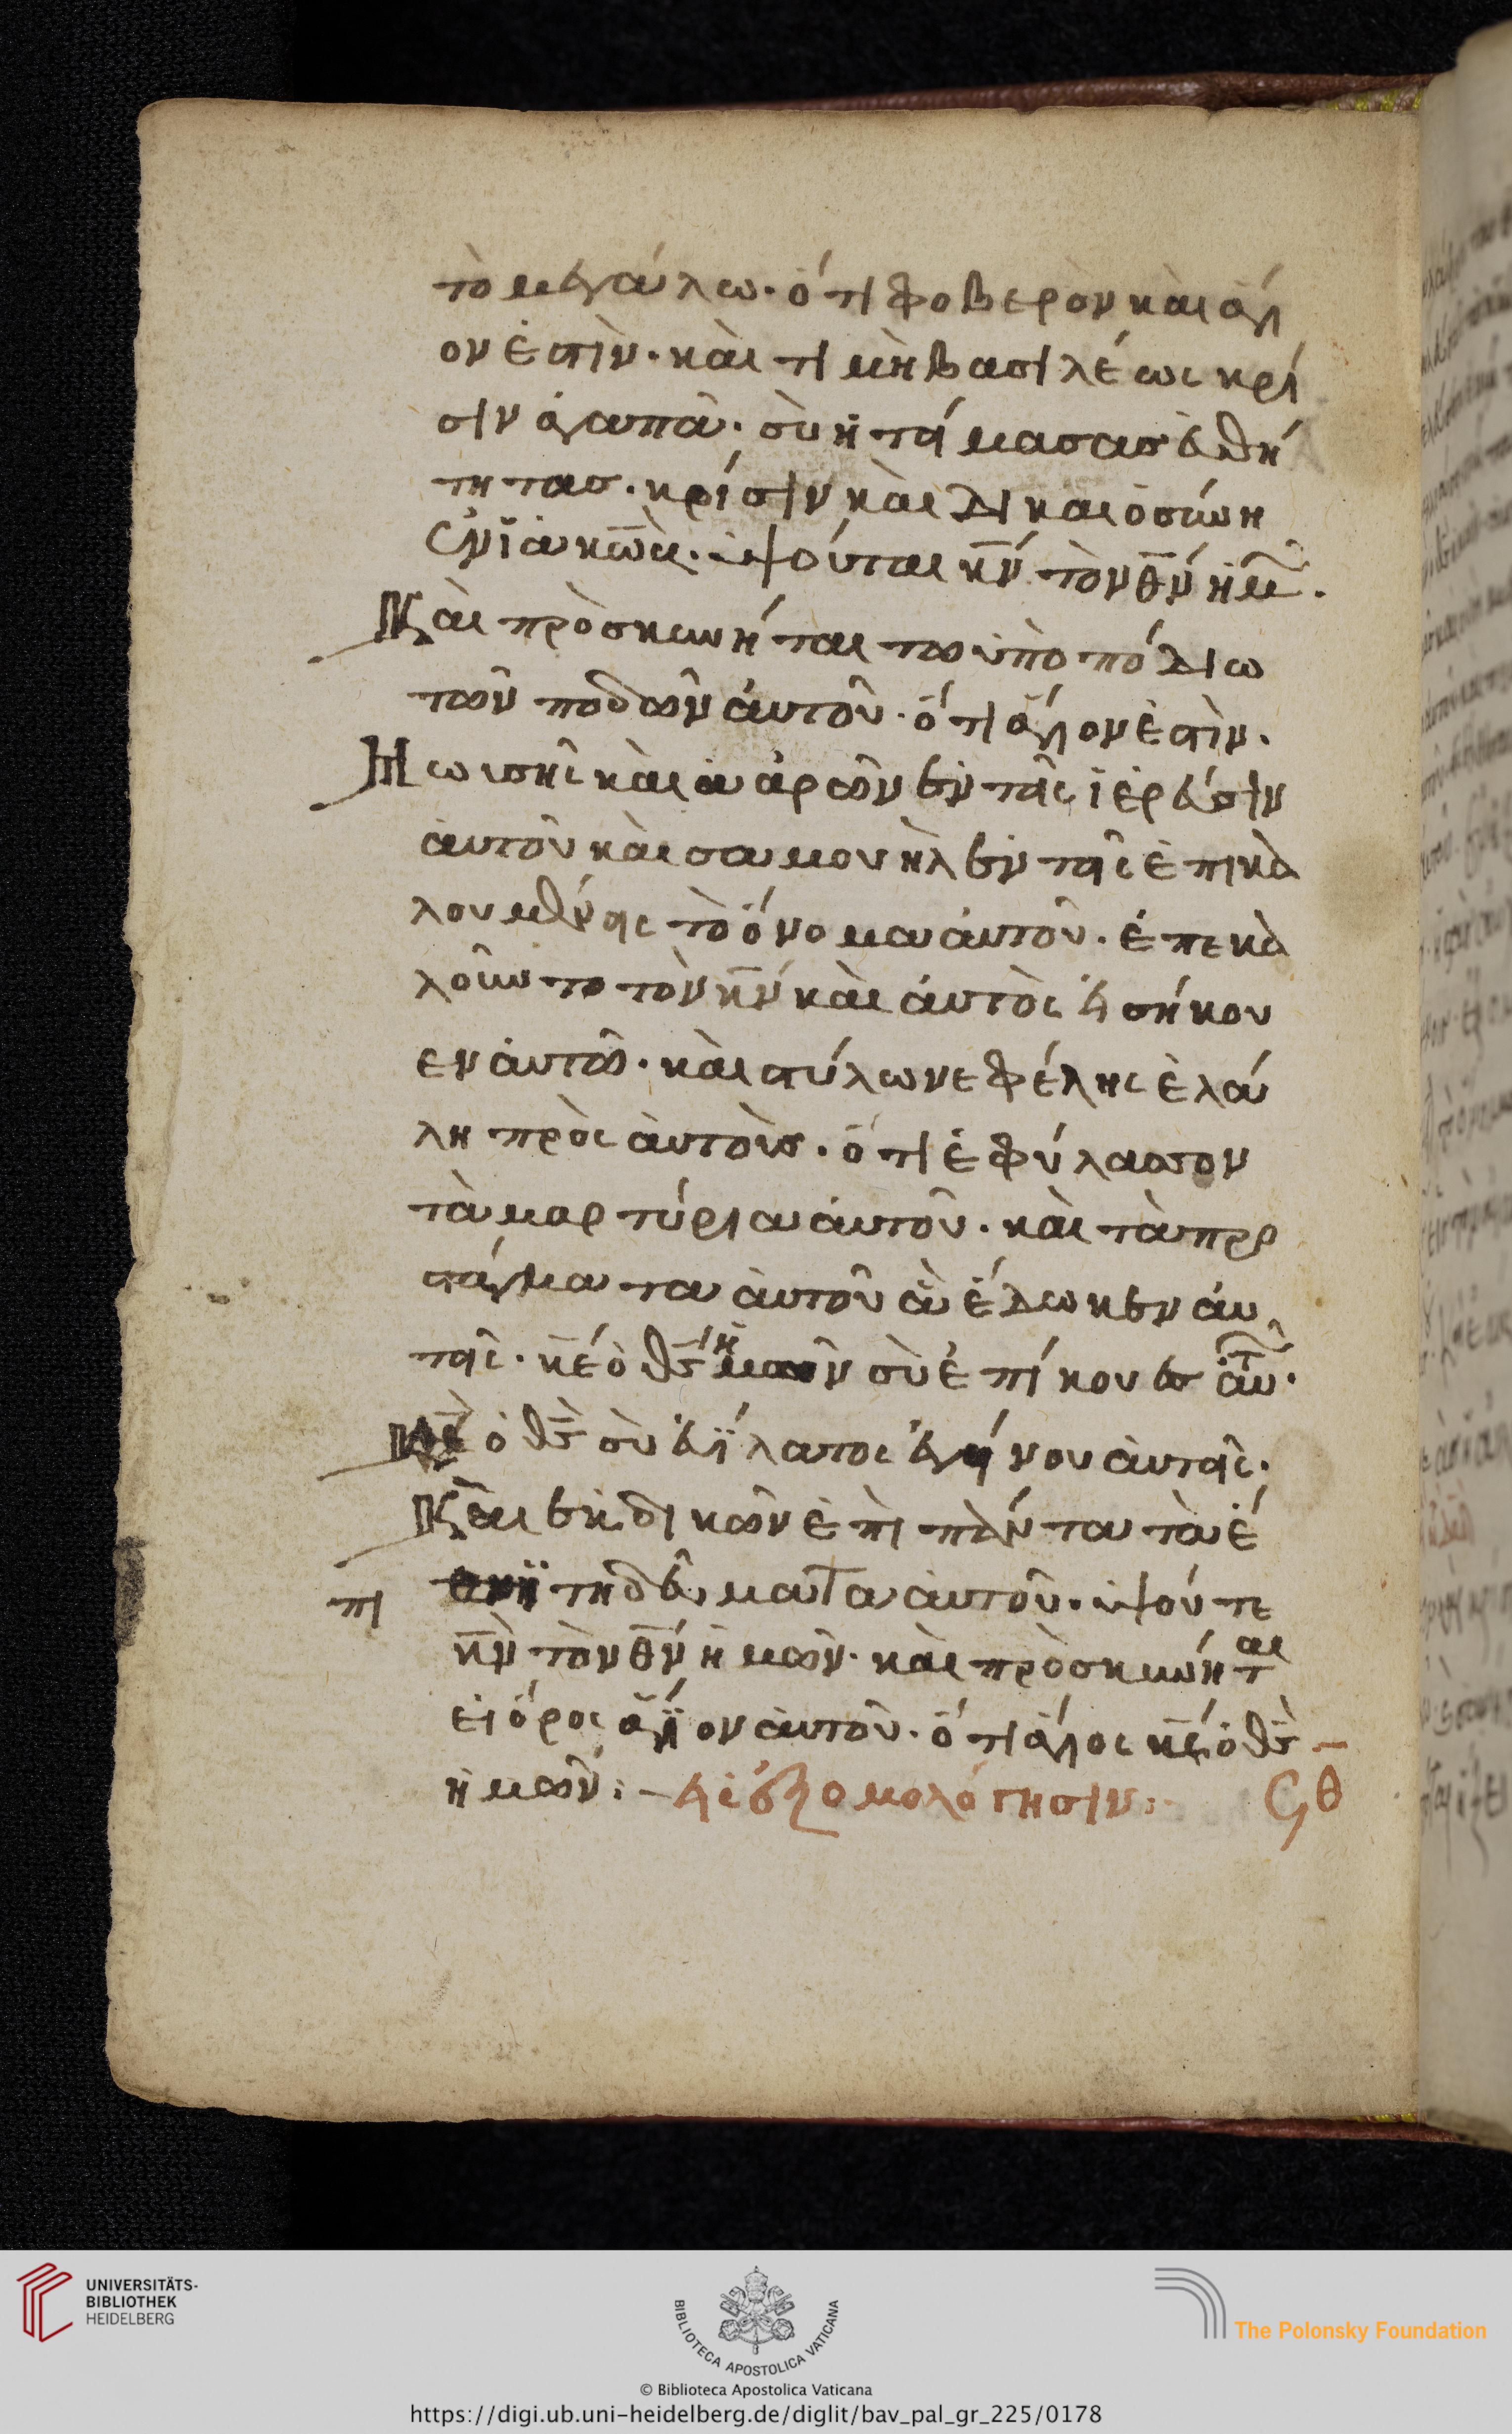 τὸ μεγάλω· ὅτι φοβερὸν καὶ ἅγι
ον ἐστὶν· καὶ τιμὴ βασιλέως κρί
σιν ἀγαπᾶ· σὺ ἡτίμασας εὐθή
τητας· κρίσιν καὶ δικαιοσύνη
ἐν ϊακῶβ· ὑψούται κ̅ν̅ τὸν θ̅ν̅ ἡμ̅·
Καὶ προσκυνήται τῶ ὑπὸ πόδιω
τῶν ποδῶν ἀυτοῦ· ὅτι ἅγιον ἐστὶν·
Μωισῆς καὶ ἀαρῶν ἐν τοῖς ἱερεύσιν
ἀυτοῦ καὶ σαμουὴλ ἐν τοῖς ἐπικα
λουμένοις τὸ ὄνομα ἀυτοῦ· ἐπεκα
λοῦντο τὸν κ̅ν̅ καὶ ἀυτὸς εἰσήκου
εν ἀυτῶ· καὶ στύλω νεφέλης ἐλά
λη πρὸς ἀυτοὺς· ὅτι ἐφύλασσον
τὰ μαρτύρια ἀυτοῦ· καὶ τὰ προ
στάγματα ἀυτοῦ ἃ ἔδωκεν ἀυ
τοῖς· κ̅ε̅ ὁ θ̅ς̅ ἡμῶν σὺ ἐπίκουες ἀυ̅τ̅·
κ̅ε̅ ὁ θ̅ς̅ σὺ εὐϊλατος ἐγίνου ἀυτοῖς·
Καὶ ἐκδικῶν ἐπὶ πάντα τὰ ἐ
πι τηδεύματα ἀυτοῦ· ὑψούτε
κ̅ν̅ τὸν θ̅ν̅ ἡμῶν· καὶ προσκυνήται
εἰ ὄρος ἅγϊον ἀυτοῦ· ὅτι ἅγιος κ̅ε̅ ὁ θ̅ς̅
ἡμῶν:- εἰς ἐξομολόγησιν:- Ϟθ
UNIVERSITÄTS-
BIBLIOTHEK
HEIDELBERG
BIBLIOTECA APOSTOLICA VATICANA
The Polonsky Foundation
© Biblioteca Apostolica Vaticana
https://digi.ub.uni-heidelberg.de/diglit/bav_pal_gr_225/0178